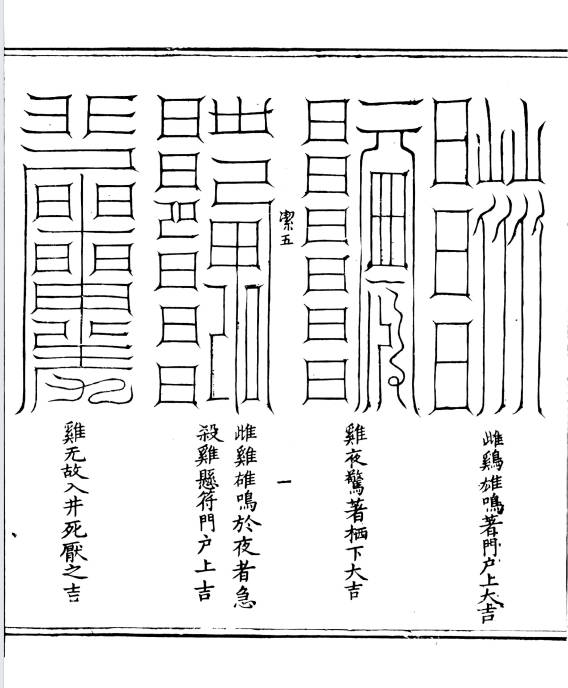 雌鷄雄鳴著門户上大吉
雞夜驚著栖下大吉
潔五
一
雌雞雄鳴於夜者急
殺雞懸符門户上吉
雞无故入井死厭之吉